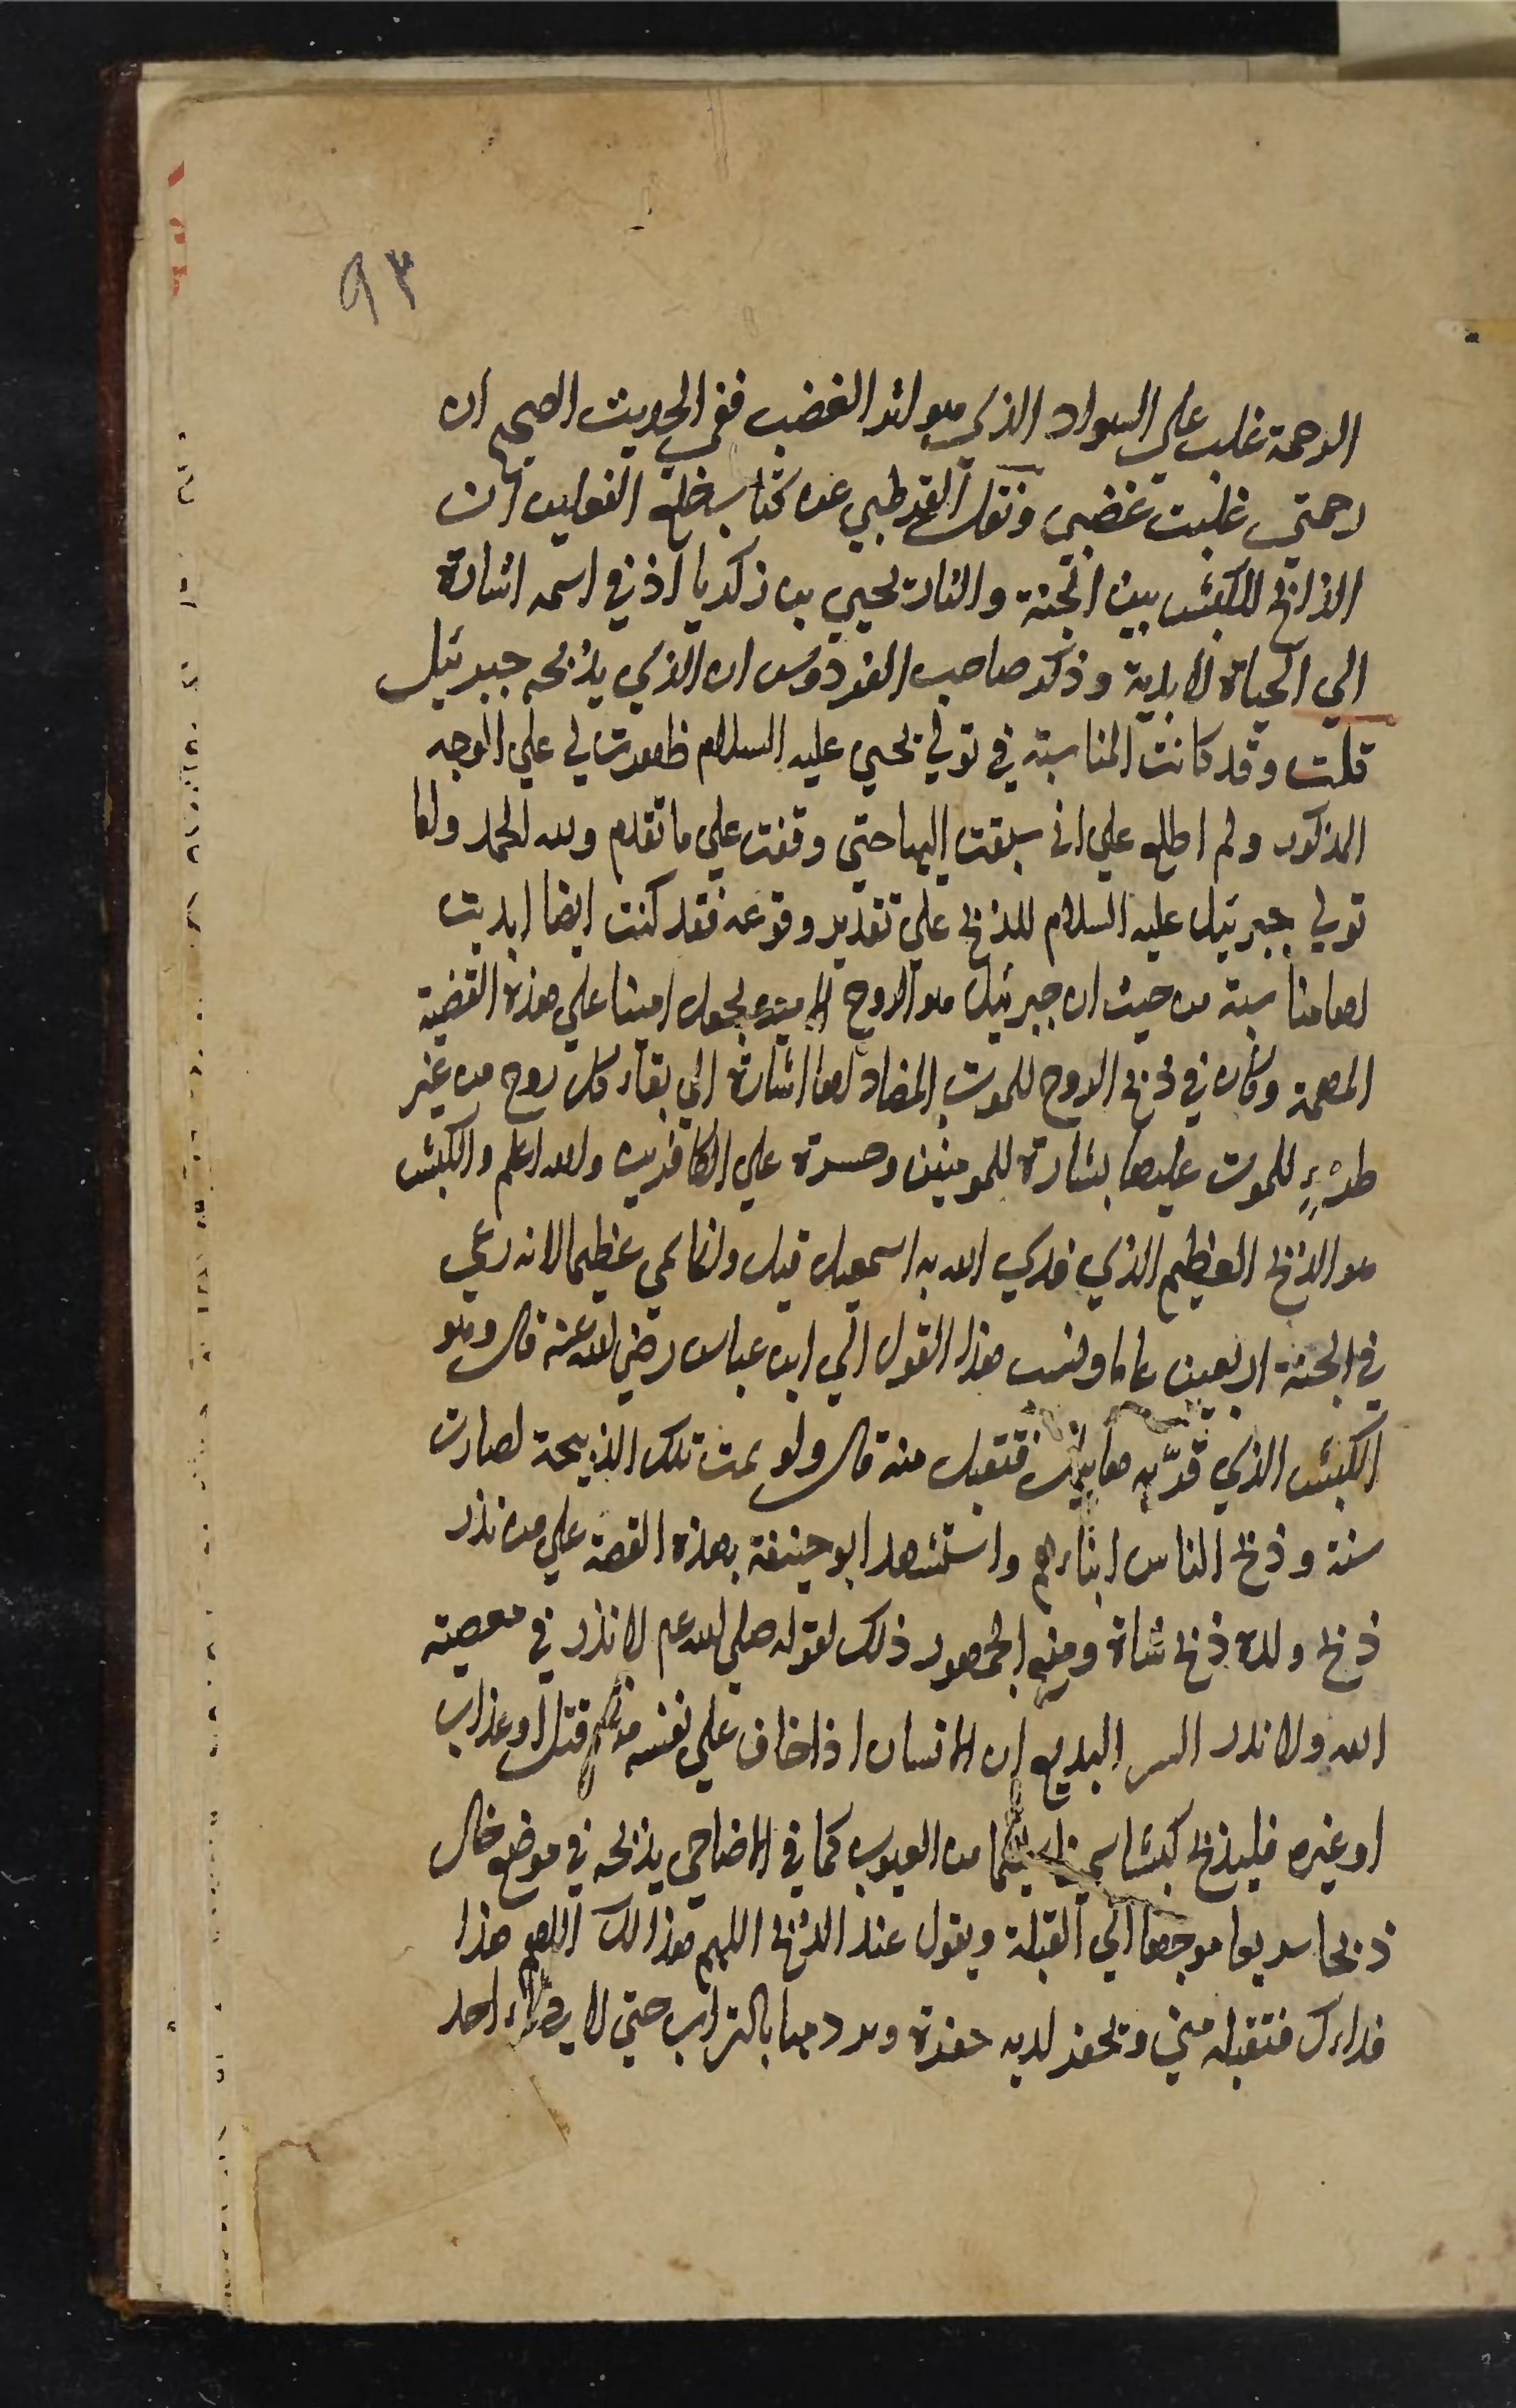 ٩٣
الرحمة غلب علي السواد الذي هو اثر الغضب ففي الحديث الصحيح ان
رحمتي غلبت غضبي ونقل القرطبي عن كتاب خلع النعلين ان
الذابح للكبش بين الجنة والنار يحيي بن زكريا اذ في اسمه اشارة
الي الحياة الابدية وذكر صاحب الفردوس ان الذي يذبحه جبرئيل
قلت وقد كانت المناسبة في تولي يحيي عليه السلام ظهرت لي علي الوجه
المذكور ولم اطلع علي اني سبقت اليها حتي وقفت علي ما تقدم ولله الحمد واما
تولي جبرئيل عليه السلام للذبح علي تقدير وقوعه فقد كنت ايضا ابديت
لها مناسبة من حيث ان جبرئيل هو الروح الامين فجعل امينا علي هذه القضية
المهمة وكان في ذبح الروح للموت المضاد لها اشارة الي بقاء كل روح من غير
طروء للموت عليها بشارة للمومنين وحسرة علي الكافرين والله اعلم والكبش
هو الذبح العظيم الذي فدي الله به اسمعيل قيل وانما سمي عظيما لانه رعي
في الجنة اربعين عاما ونسب هذا القول الي ابن عباس رضي الله عنه قال وهو
الكبش الذي قرّبه هابيل فتقبل منه قال ولو تمت تلك الذبيحة لصارت
سنة وذبح الناس ابناءهم واستشهد ابو حنيفة بهذه القصة علي من نذر
ذبح ولده ذبح شاة ومنع الجمهور ذلك لقوله صلي الله عم لا نذر في معصية
الله ولا نذر السر البديع ان الانسان اذا خاف علي نفسه من قتل او عذاب
او غيره فليذبح كبشا سمينا سليما من العيوب كما في الاضاحي يذبحه في موضع خال
ذبحا سريعا موجها الي القبلة ويقول عند الذبح اللهم هذا لك اللهم هذا
فداءك فتقبله مني ويحفر لدمه حفرة ويردمها بالتراب حتي لا يطاءه احد